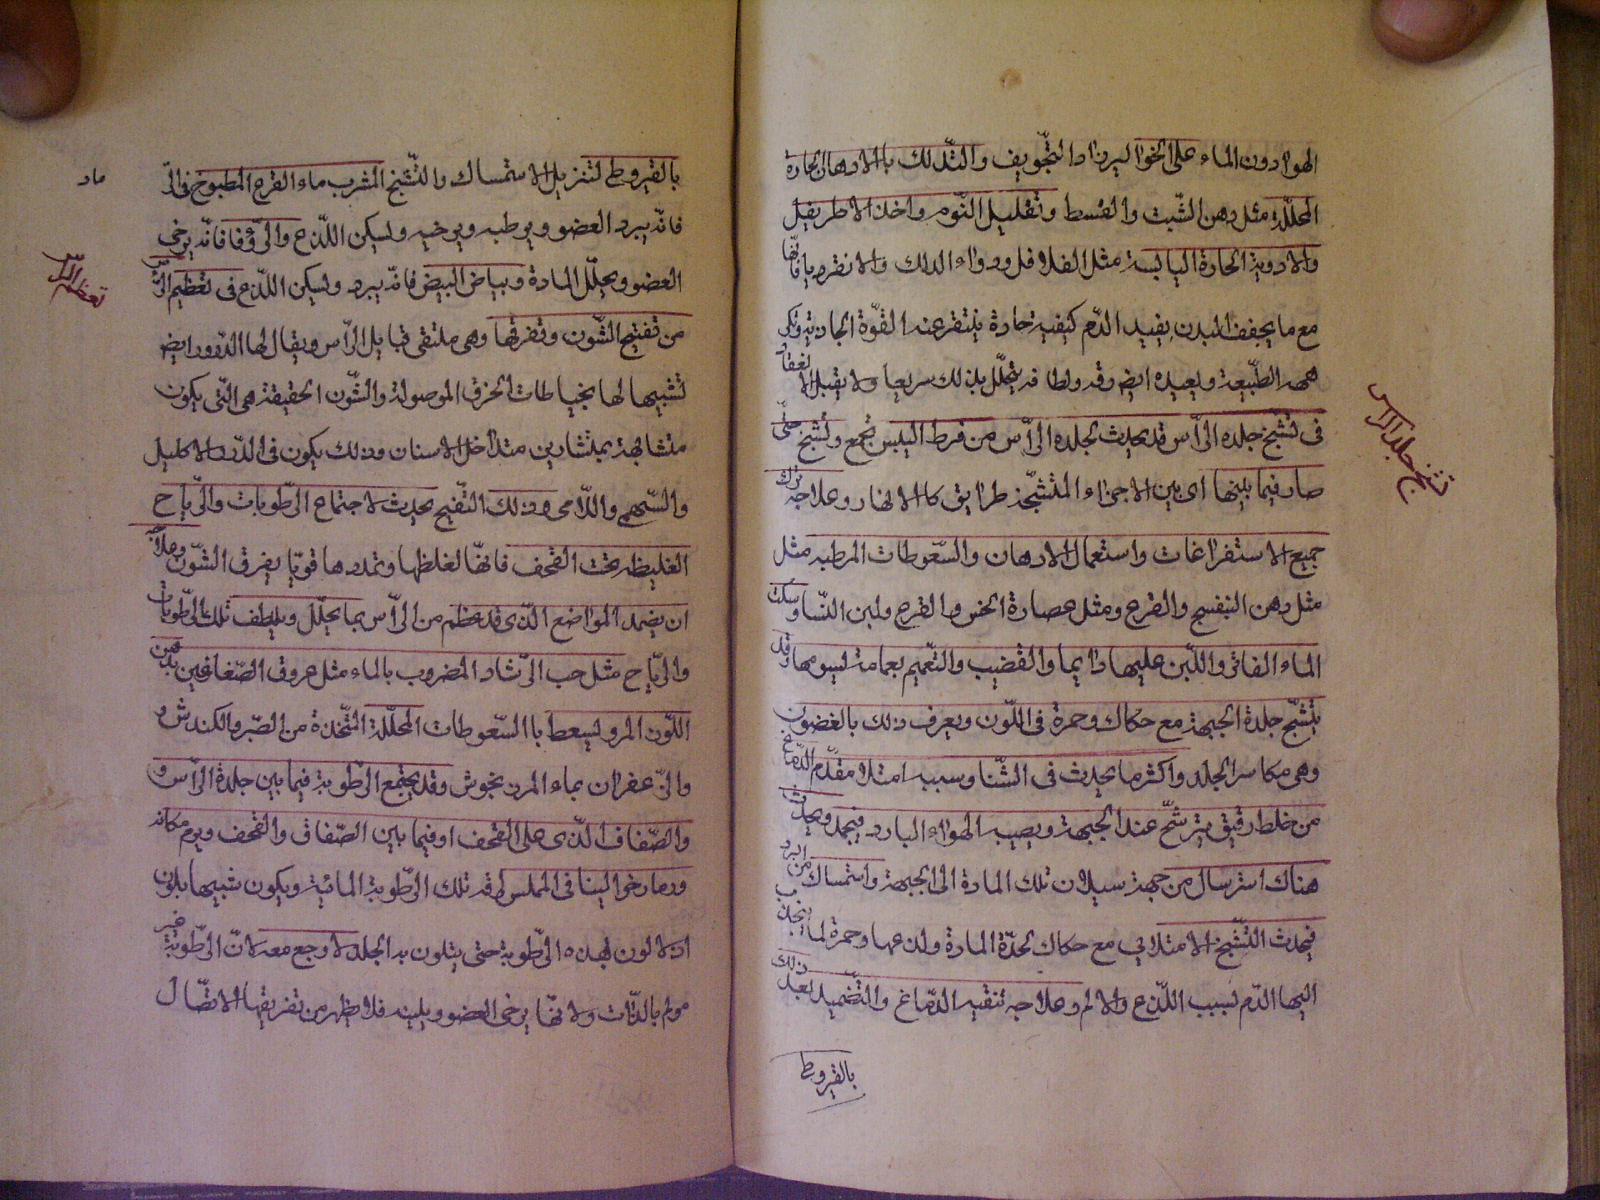 الهوا دون الماء على الخوا ليزداد التجويف والتدلك با الادهان الحارة
المحللة مثل دهن الشبت والقسط وتقليل النوم واخذ الاطريفل
والادوية الحارة اليابسة مثل الفلافل ودواء الدلك والانقرديا فانها
مع ما يجفف البدن يفيد الدم كيفية حارة
الطبيعة ويعيده ايض وقد ولطافته يتحلل بذلك سريعا ولا يقبل الانعقاد
فى تشنج جلده الراس قد يحدث لجلده الراس من فرط اليبس تجمع وتشنج حتى
صار فيما بينها اى بين الاجزاء المتشنجة طرايق كالانهار وعلاجه ترك
جميع الاستفراغات واستعمال الادهان والسعوطات المرطبه مثل
مثل دهن البنفسج والقرع ومثل عصارة الخس والقرع ولبن النسا وسكب
الماء الفاتر واللبن عليها دايما والقضيب والتعميم بعمامة ليسومها وقد
يتشنج جلدة الجبهة مع حكاك وحمرة فى اللون ويعرف ذلك بالغضون
وهى مكاسر الجلد واكثر ما يحدث فى الشتا وسببه امتلا مقدم الدماغ
من خلط رقيق يترشح عند الجبهة ويصيبه الهواء البارد فيجمد ويحدث
هناك استرسال من جهة سيلان تلك المادة الى الجبهة واستمساك من البرد
فيحدث التشنج الامتلايى مع حكاك لحدة المادة ولذعها وحمرة لما ينجذب
اليها الدم بسبب اللذع والالم وعلاجه تنقيه الدماغ والتضميد بعد ذلك
بالقيروطى
تشنج جلد الراس
بالقيروطى لتنزيل الاستمساك والتشنج المشرب ماء القرع المطبوخ فى الر
ماد
فانه يبرد العضو ويرطبه ويرخيه ويسكن اللذع والزوفا فانه يرخى
العضو ويحلل المادة وبياض البيض فانه يبرد ويسكن اللذع فى تعظيم الراس
تعظيم الراس
من تفتيح الشون وتفرقها وهى ملتقى قبايل الراس ويقال لها الدروز ايض
تشبيها لها بخياطات الخرق الموصولة والشون الحقيقة هى التى يكون
متشابهة بمنشارين متداخل الاسنان وذلك يكون فى الدرز الاكليل
والسهمى واللامى وذلك التفتيح يحدث لاجتماع الرطوبات والرياح
الغليظه تحت القحف فانها لغلظها وتمددها قويا يفرق الشون وعلاجه
ان يضمد المواضع الذى قد عظم من الراس بما يحلل ويلطف تلك الرطوبات
والرياح مثل حب الرشاد المضروب بالماء مثل عروق الصفاغين بدهن
اللوز المر ويسعط با السعوطات المحللة المتخذة من الصبر والكندش و
والزعفران بماء المرزنجوش وقد يجتمع الرطوبة فيما بين جلدة الراس و
والصفاف الذى على القحف او فيما بين الصفاف والقحف ويوم مكانه
ورما رخوا لينا فى الملمس لرقة تلك الرطوبة المائية ويكون شبيها بلون
اذ لا لون لهذه الرطوبة حتى يتلون به الجلد لا وجع معه لان الرطوبة غير
مولم بالذات ولانها يرخى العضو ويلينه فلا يظهر من تفريقها الاتصال